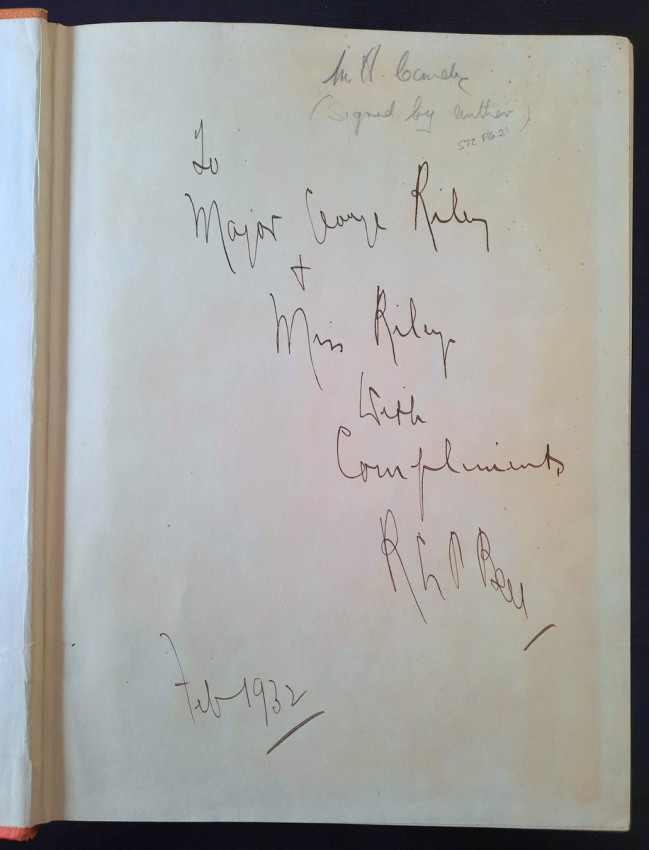 (Signed by Author)
To
Major George Riley
+
Miss Riley
With
Compliments
Bell
Feb 1932